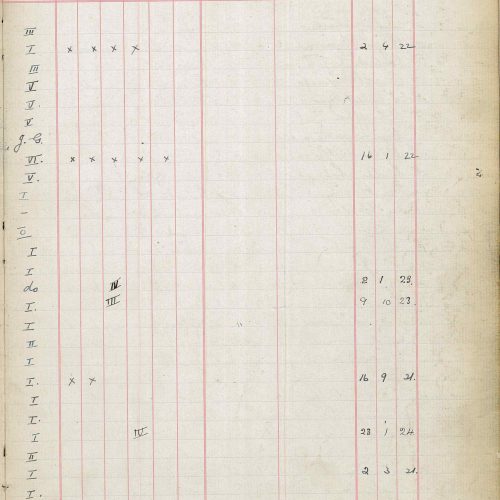 III
I x x x x 2 4 22
III
V
V.
V
J. C.
VI. x x x x x 16 1 22
V.
I
–
I
I
do IV 2 1 23.
I. III 9 10 23.
I
II
I
I. x x 16 9 21.
I
I.
I IV 23 1 24
II
I 2 3 21.
I.